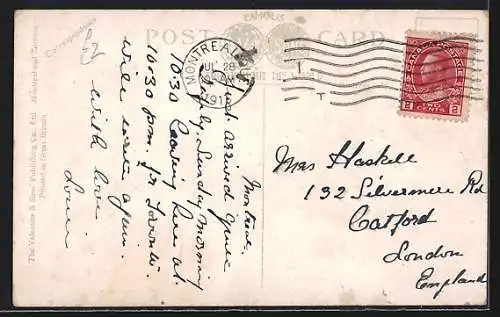 FAMOUS
POST CARD
Correspondence
MONTREAL
JUL 28
191
CANADA POSTAGE
2 TWO CENTS 2
Montreal.
Just arrived quite
safely Sunday morning
10.30 Leaving here at
10.30 pm. for Toronto.
Will write again.
with love
Mrs Haskell
132 Silvermere Rd
Catford
London
England
The Valentine & Sons' Publishing Co., Ltd. Montreal and Toronto
Printed in Great Britain